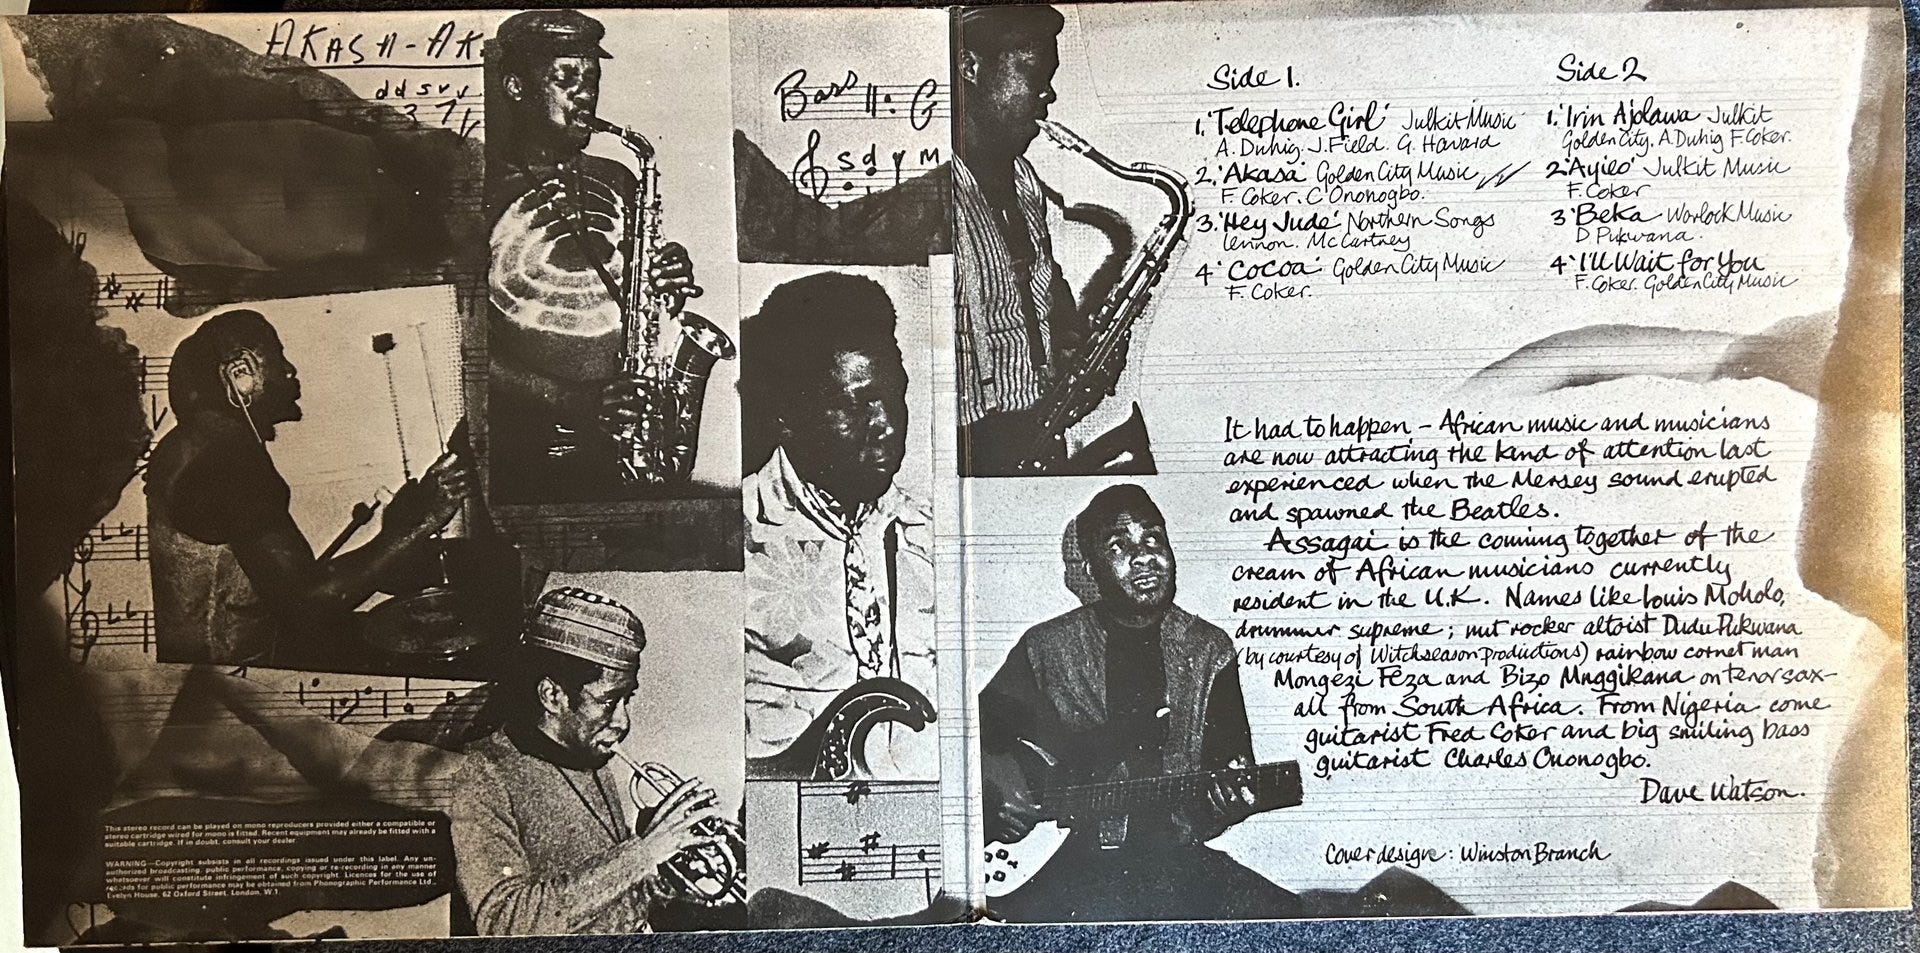 AKASA-AK
d d s v v
3 7
Bass G
s d r M
This stereo record can be played on mono reproducers provided either a compatible or
stereo cartridge wired for mono is fitted. Recent equipment may already be fitted with a
suitable cartridge. If in doubt, consult your dealer
WARNING—Copyright subsists in all recordings issued under this label. Any un-
authorized broadcasting, public performance, copying or re-recording in any manner
whatsoever will constitute infringement of such copyright. Licences for the use of
records for public performance may be obtained from Phonographic Performance Ltd.,
Evelyn House, 62 Oxford Street, London, W.1.
Side 1.
1. 'Telephone Girl' Julkit Music
A. Duhig. J. Field. G. Havard
2. 'Akasa' Golden City Music
F. Coker. C Ononogbo.
3. 'Hey Jude' Northern Songs
Lennon. McCartney
4 'Cocoa' Golden City Music
F. Coker.
Side 2
1. 'Irin Ajolawa Julkit
Golden City. A. Duhig F. Coker.
2 'Ayieo' Julkit Music
F. Coker
3 'Beka Warlock Music
D Pukwana.
4 'I'll Wait for You
F. Coker. Golden City Music
It had to happen – African music and musicians
are now attracting the kind of attention last
experienced when the Mersey sound erupted
and spawned the Beatles.
Assagai is the coming together of the
cream of African musicians currently
resident in the U.K. Names like Louis Moholo,
drummer supreme; nut rocker altoist Dudu Pukwana
(by courtesy of Witchseason Productions) rainbow cornet man
Mongezi Feza and Bizo Mnggikana on tenor sax–
all from South Africa. From Nigeria come
guitarist Fred Coker and big smiling bass
guitarist Charles Ononogbo.
Dave Watson.
Cover design: Winston Branch